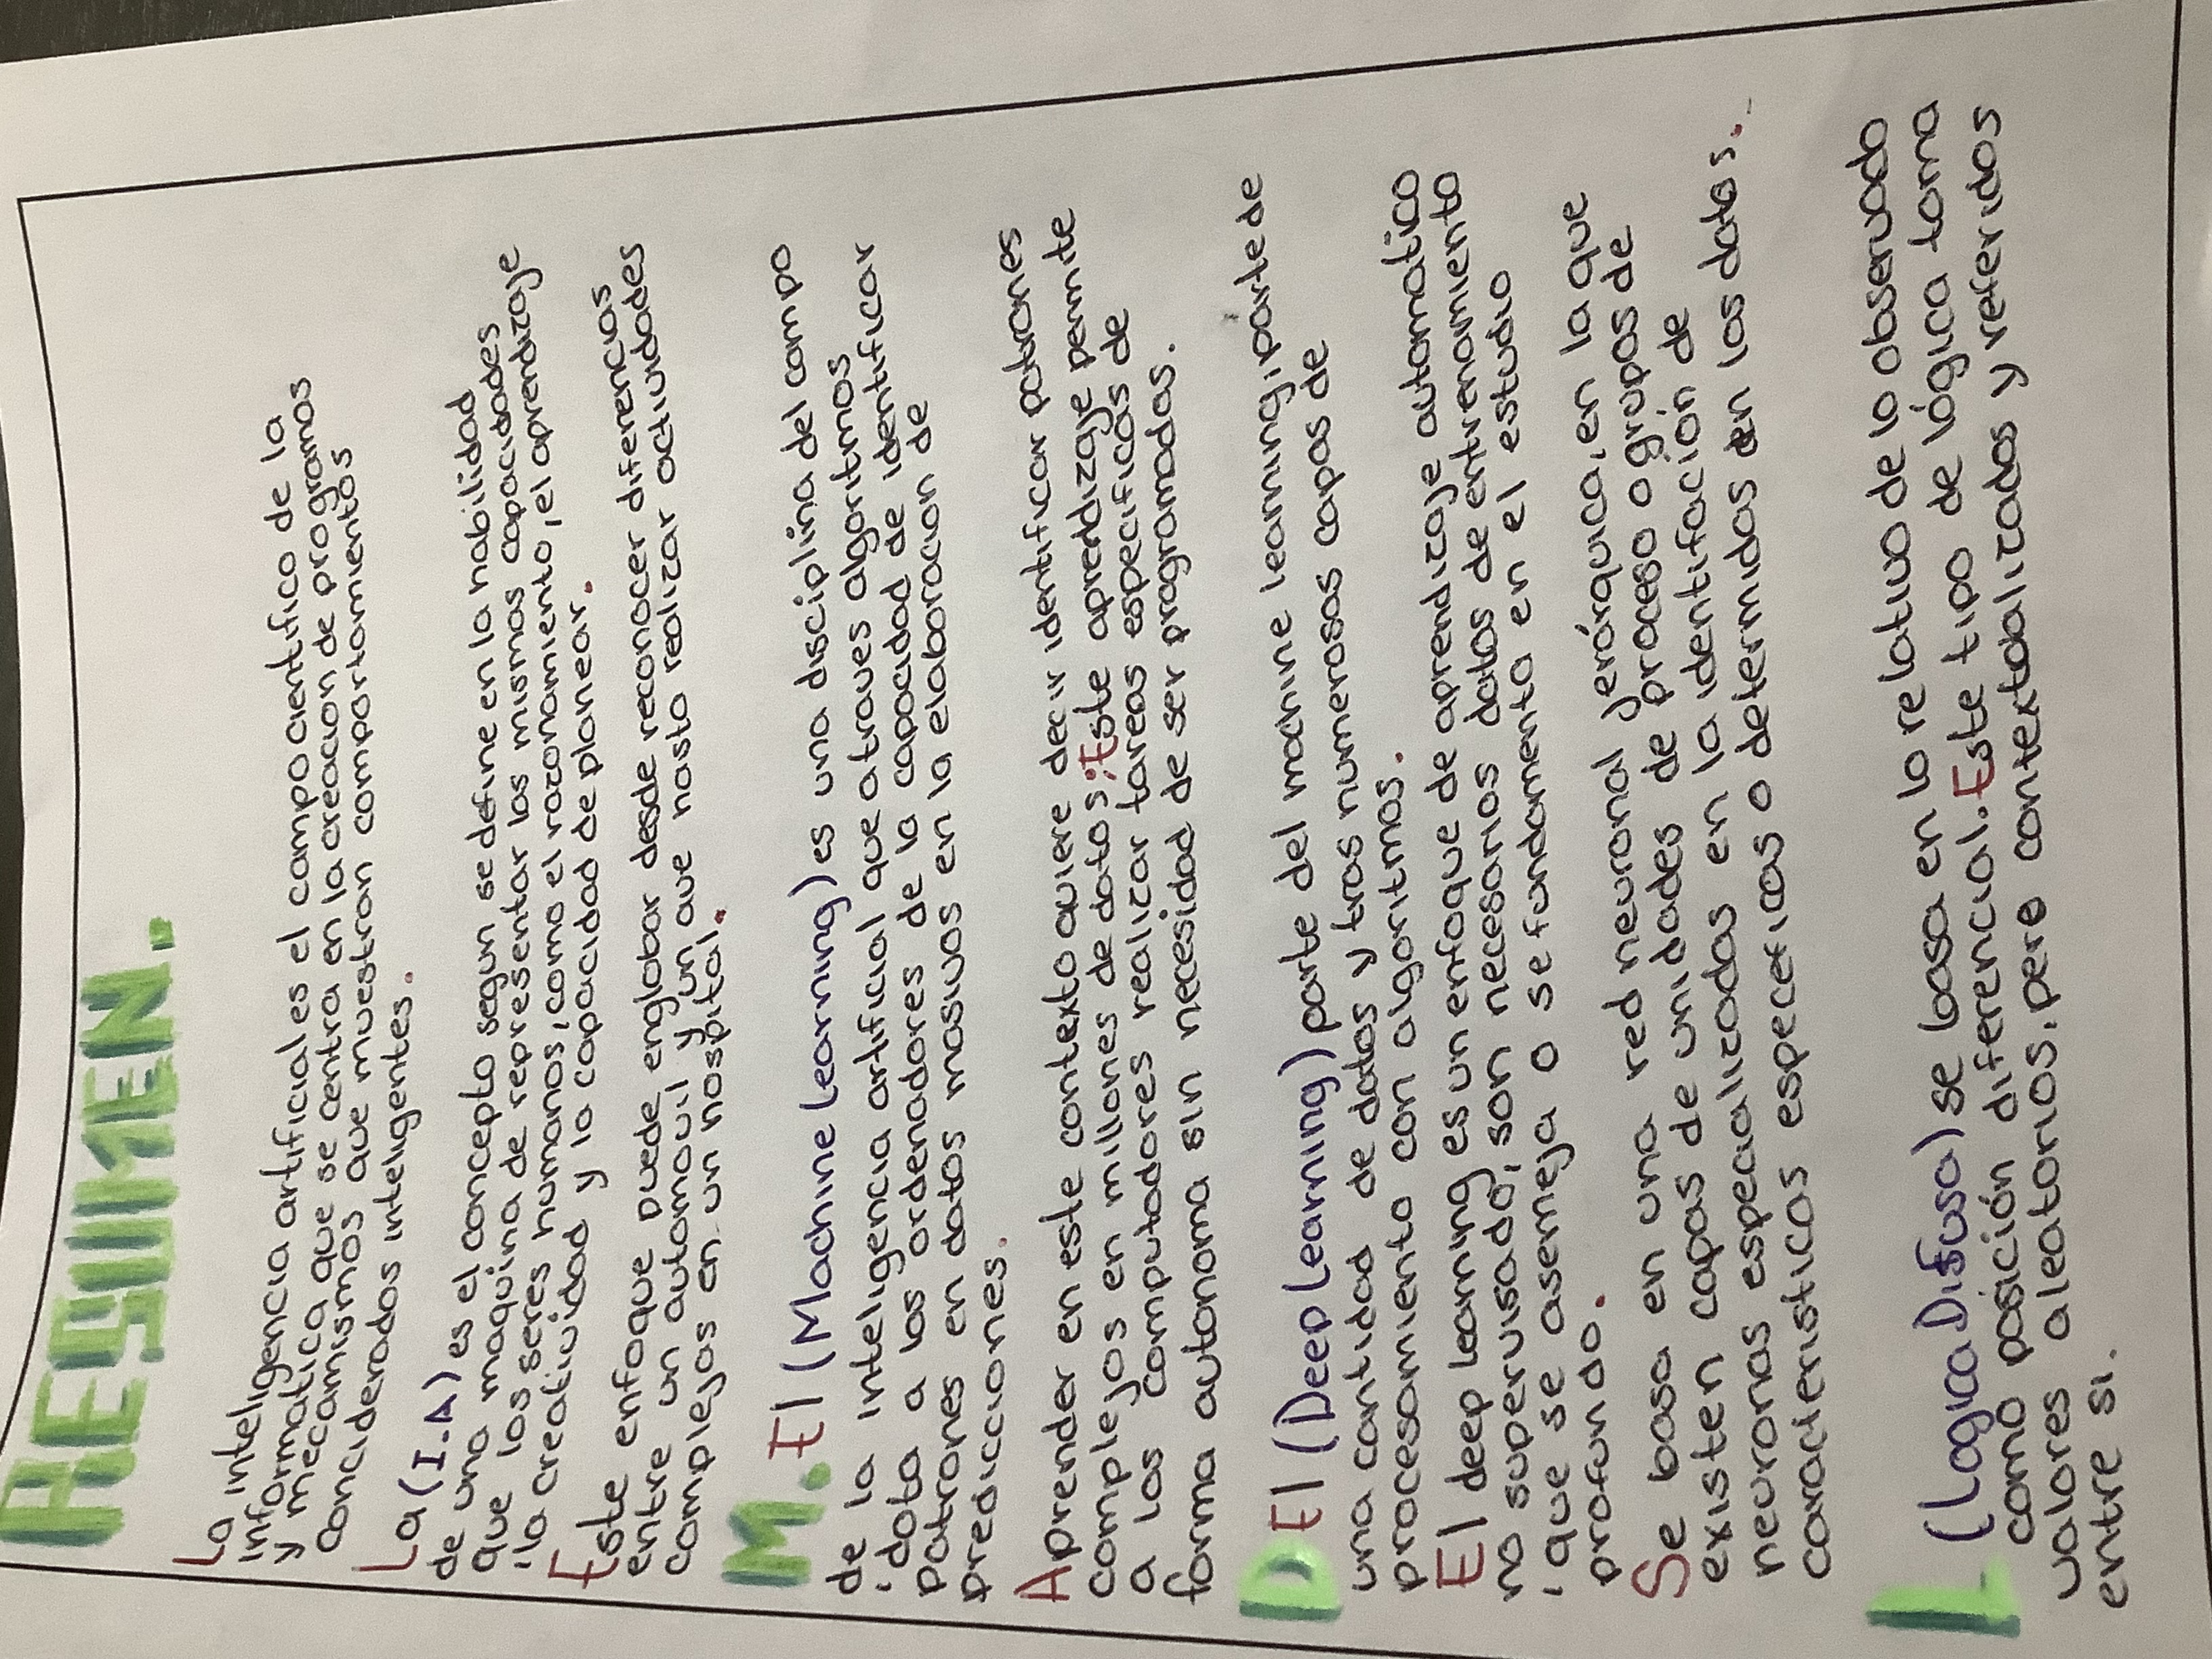 RESUMEN.
La inteligencia artificial es el campo cientifico de la
informatica que se centra en la creacion de programas
y mecamismos que muestran comportamientos
conciderados inteligentes.
La (I.A) es el concepto segun se define en la habilidad
de una maquina de representar las mismas capacidades
que los seres humanos, como el razonamiento, el aprendizaje
'la creatividad y la capacidad de planear.
Este enfoque puede englobar desde reconocer diferencias
entre un automovil y un ave hasta realizar actividades
complejas en un hospital.
M. El (Machine Learning) es una disciplina del campo
de la inteligencia artificial que atraves algoritmos
'dota a los ordenadores de la capacidad de identificar
Patrones en datos masivos en la elaboracion de
predicciones.
Aprender en este contexto quiere decir identificar patrones
complejos en millones de datos; Este aprendizaje permite
a los computadores realizar tareas especificas de
forma autonoma sin necesidad de ser programadas.
D El (Deep Learning) parte del machine learning, parte de
una cantidad de datos y tras numerosas capas de
procesamiento con algoritmos.
El deep learning es un enfoque de aprendizaje automatico
no supervisado, son necesarios datos de entrenamiento
'que se asemeja o se fundamenta en el estudio
profundo.
Se basa en una red neuronal jerárquica, en la que
existen capas de unidades de proceso o grupos de
neuronas especializadas en la identifación de
caracteristicas especeficas o determidas en los datos.
L (Logica Difusa) se basa en lo relativo de lo observado
como posición diferencial. Este tipo de lógica toma
valores aleatorios, pero contextualizados y referidos
entre si.